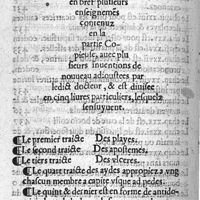 en bref plusieurs
enseignemẽs
contenuz
en la
partie Co-
pieuse, avec plu
sieurs inventions de
nouveau adioustees par
ledict docteur, & est divisee
en cinq livres particuliers, lesquelz
sensuyuent.
¶Le premier traicte Des playes.
¶Le second traicte Des apostemes.
¶Le tiers traicte Des ulceres.
¶Le quart traicte des aydes appropiez a ung
chascun membre a capite usque ad pedes.
¶Le quint & dernier est en forme de antido-